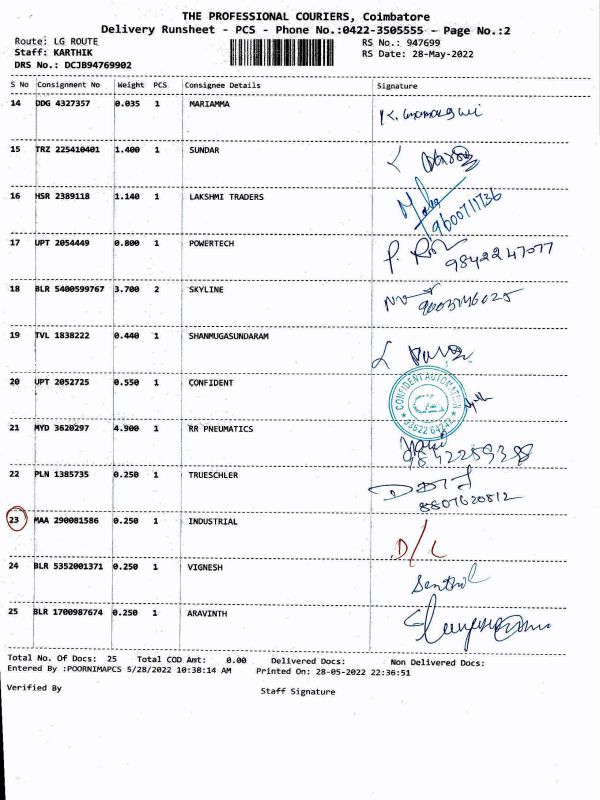 THE PROFESSIONAL COURIERS, Coimbatore
Delivery Runsheet - PCS - Phone No.:0422-3505555 - Page No.:2
Route: LG ROUTE RS No.: 947699
Staff: KARTHIK RS Date: 28-May-2022
DRS No.: DCJB94769902
S No Consignment No Weight PCS Consignee Details Signature
14 DDG 4327357 0.035 1 MARIAMMA
15 TRZ 225410401 1.400 1 SUNDAR
16 HSR 2389118 1.140 1 LAKSHMI TRADERS 9600711736
17 UPT 2054449 0.800 1 POWERTECH 9842247077
18 BLR 5400599767 3.700 2 SKYLINE
19 TVL 1838222 0.440 1 SHANMUGASUNDARAM
20 UPT 2052725 0.550 1 CONFIDENT CONFIDENT AUTOMATION
21 MYD 3620297 4.900 1 RR PNEUMATICS
22 PLN 1385735 0.250 1 TRUESCHLER 8807620812
23 MAA 290081586 0.250 1 INDUSTRIAL D/L
24 BLR 5352001371 0.250 1 VIGNESH Senthil
25 BLR 1700987674 0.250 1 ARAVINTH
Total No. Of Docs: 25 Total COD Amt: 0.00 Delivered Docs: Non Delivered Docs:
Entered By :POORNIMAPCS 5/28/2022 10:38:14 AM Printed On: 28-05-2022 22:36:51
Verified By Staff Signature